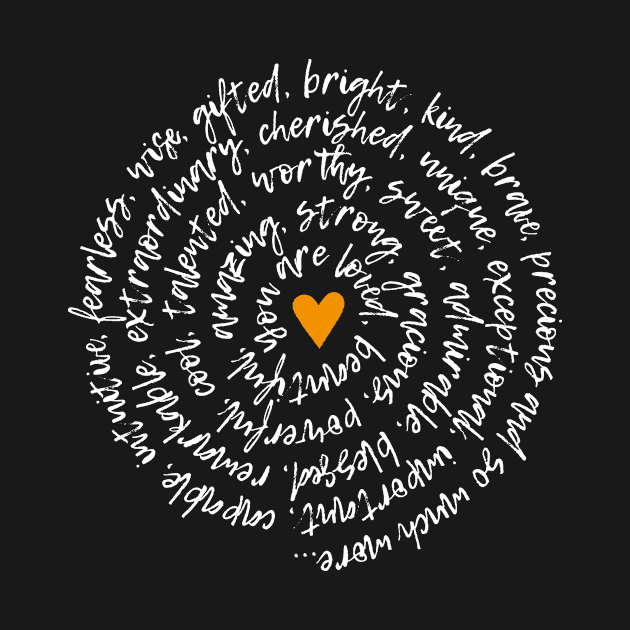 you are loved, beautiful, amazing, strong, gracious, powerful, cool, talented, worthy, sweet, admirable, blessed, remarkable, extraordinary, cherished, unique, exceptional, important, capable, intuitive, fearless, wise, gifted, bright, kind, brave, precious and so much more...